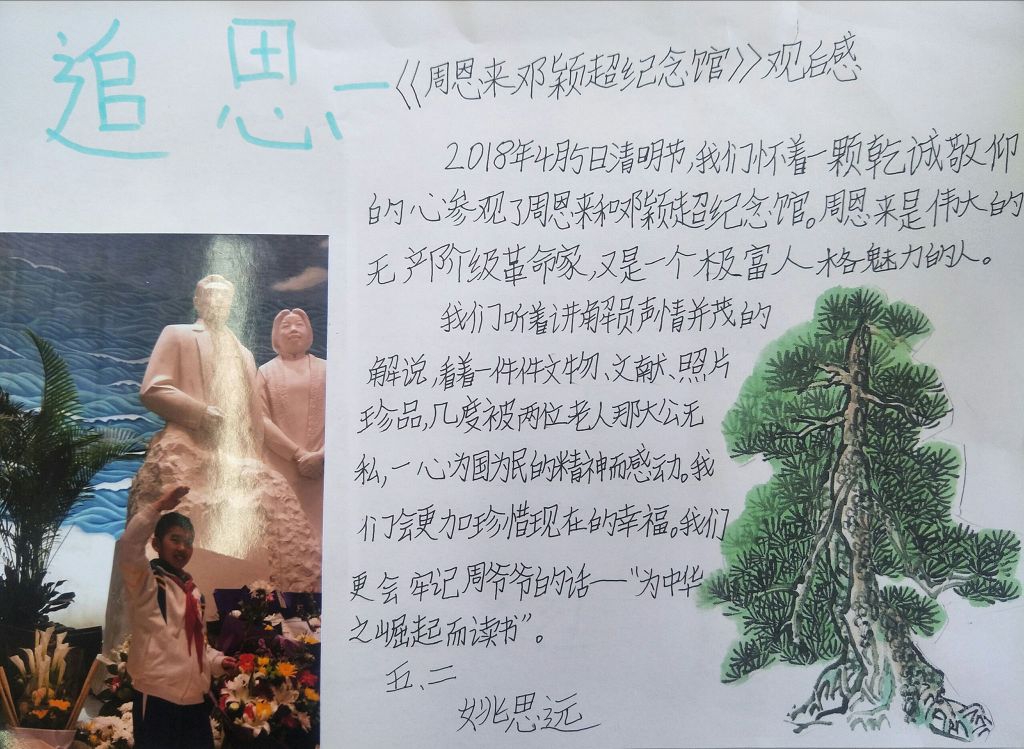 追思—《周恩来邓颖超纪念馆》观后感
2018年4月5日清明节,我们怀着一颗乾诚敬仰
的心参观了周恩来和邓颖超纪念馆。周恩来是伟大的
无产阶级革命家,又是一个极富人格魅力的人。
我们听着讲解员声情并茂的
解说,看着一件件文物、文献、照片
珍品,几度被两位老人那大公无
私,一心为国为民的精神而感动。我
们会更加珍惜现在的幸福。我们
更会牢记周爷爷的话——“为中华
之崛起而读书”。
五、二
姚思远